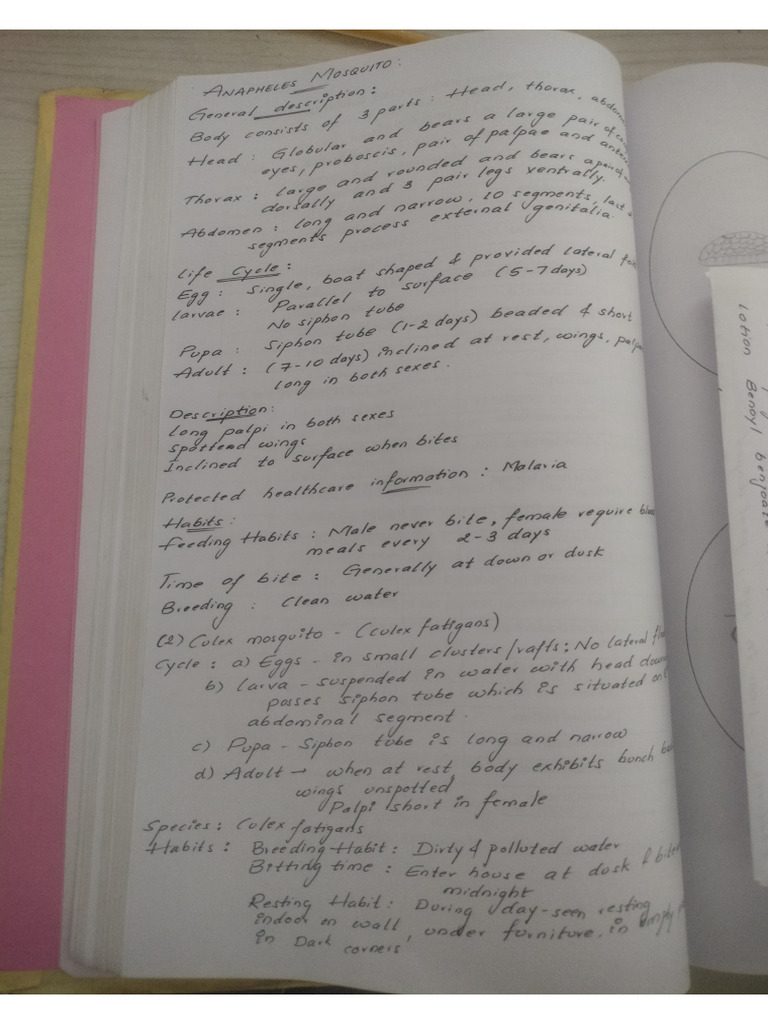 ANAPHELES MOSQUITO:
General description:
Body consists of 3 parts: Head, thorax, abdom
Head: Globular and bears a large pair of
eyes, proboscis, pair of palpae and anten
Thorax: large and rounded and bears a pair of
dorsally and 3 pair legs ventrally.
Abdomen: long and narrow, 10 segments, last
segments process external genitalia.
Life Cycle:
Egg: Single, boat shaped & provided lateral
larvae: Parallel to surface (5-7 days)
No siphon tube
Pupa: Siphon tube (1-2 days) beaded & short
Adult: (7-10 days) inclined at rest, wings, palp
long in both sexes.
Description:
long palpi in both sexes
Spottead wings
Inclined to surface when bites
Protected healthcare information: Malaria
Habits:
feeding Habits: Male never bite, female require
meals every 2-3 days
Time of bite: Generally at down or dusk
Breeding: Clean water
(2) Culex mosquito - (culex fatigans)
Cycle: a) Eggs - in small clusters/rafts: No lateral
b) larva - suspended in water with head down
posses siphon tube which is situated on
abdominal segment.
c) Pupa - Siphon tube is long and narrow
d) Adult → when at rest, body exhibits bunch
wings unspotted
Palpi short in female
Species: Culex fatigans
Habits: Breeding Habit: Dirty & polluted water
Bitting time: Enter house at dusk & bite
midnight
Resting Habit: During day-seen resting
indoor on wall, under furniture, in empty
in Dark corners
lotion Benoyl benjoate